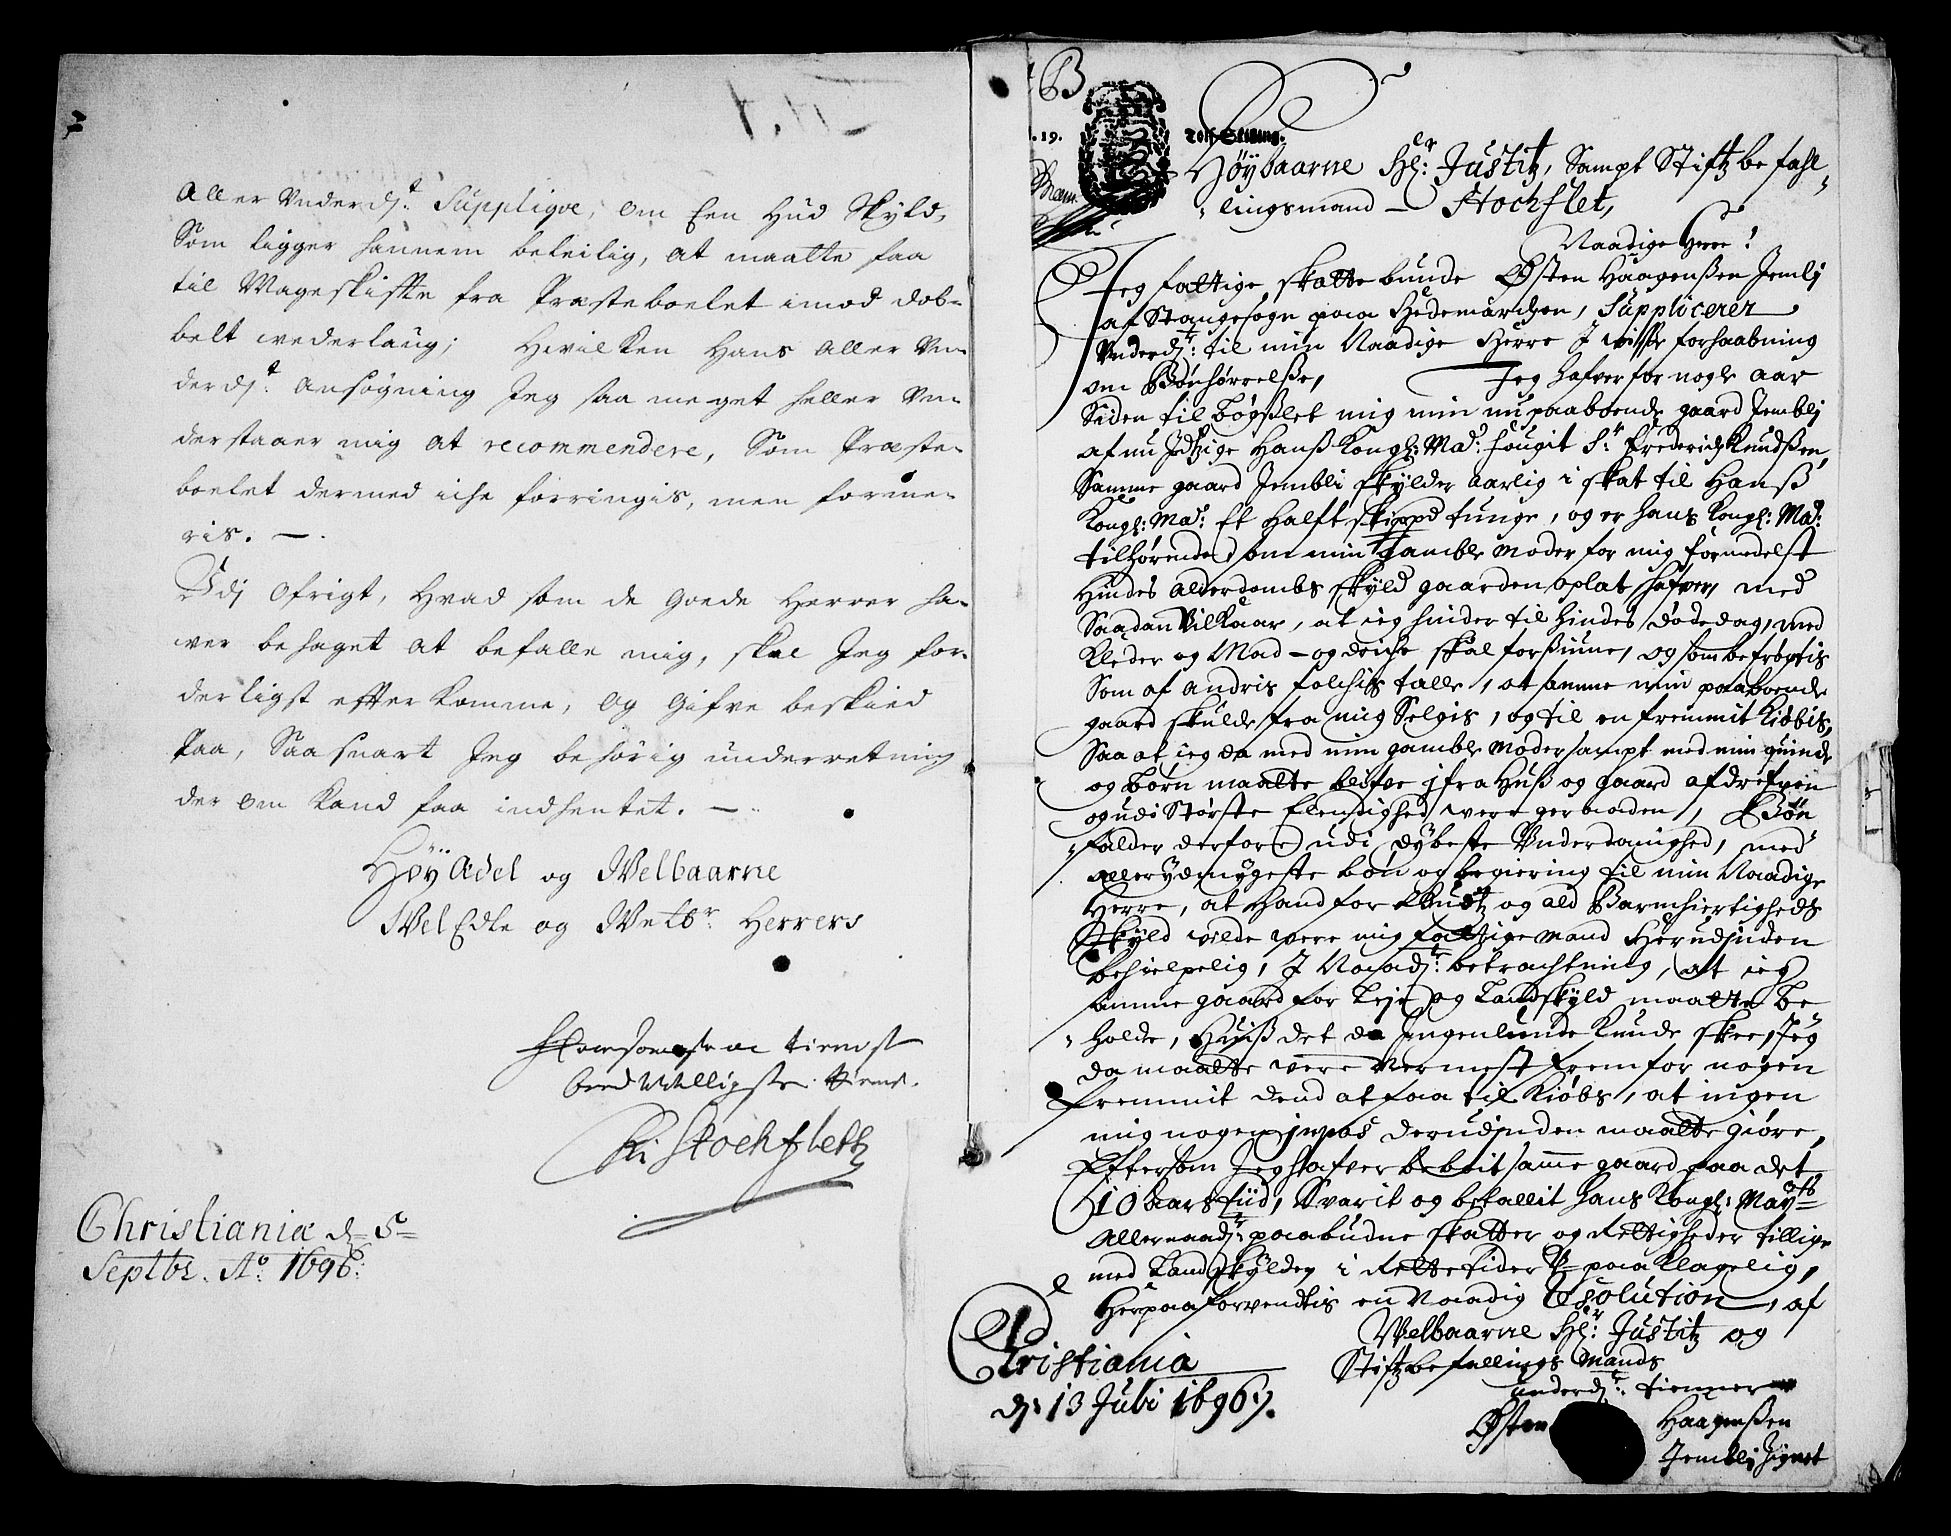 Aller Underdst: Suppliqve, om Een Hud Skyld,
Som ligger hannem beleilig, at maatte faa
til Mageskiffte fra Præsteboelet imod dob-
belt wederlaug; Hvilken Hans Aller Un-
derdst: ansøgning Jeg saa meget heller Un-
derstaaer mig at recommendere, Som Præste-
boelet dermed iche forringis, men forme-
ris. —.
Udj Øfrigt, Hvad som de Goede Herrer ha-
ver behaget at befalle mig, skal Jeg for-
derligst efterkomme, og Gifve beskied
Paa, Saa snart Jeg behørig underretning
der om kand faa indhentet. —
HøyÆdel og Welbaarne
WelEdle og Welbr: Herrers
tienst
beredvilligste tiener.
Stochfleth
Christiania d= 5=
Septbr. Ao: 1696:
B
.19. Tolf Skilling.
Høybaarne Hr: Justitz, Sampt Stiftzbefahl-
lingsmand — Stochflet,
Naadige Herre!
Jeg fattige skattebunde Østen Haagenßen Jemblj
af Stangesogn paa Hedemarchen, Supplicerer
Underdst: til min Naadige Herre J wisse forhaabning
om Bønhørrelße, Jeg hafver for nogle aar
Siden til bøgslet mig min nu paaboende gaard Jemblj
af nu Jdtzige Hanß Kongl: Mad: fougit Sr Frederich Knudßen,
Samme gaard Jembli skylder aarlig i skat til Hanß
Kongl: Mad: Et halft skippd tunge, og er hans Kongl: Mad:
tilhørende, som min gamble moder for mig formedelst
Hindes alderdombs skyld gaarden oplat hafver, med
Saadan Vilkaar, at ieg hinder til hindes døde dag, med
Kleder og Mad — og driche skal forsiune, og som befrøgtis
Som af andris folchis talle, at samme min paaboende
gaard skulde fra mig Selgis, og til en fremmit Kiøbis,
Saa at ieg da med min gamble moder sampt med min quinde
og børn maatte blifve ifra Huß og gaard afdrefven
og udi Største Elendighed were geraaden, Bøn-
falder derfore udi dybeste Underdanighed, med
allerydmygeste bøn og begiering til min Naadige
Herre, at Hand for Gudtz og ald Barmhiertigheds
Skyld wilde were mig fattige mand Herudjnden
behielpelig, J Naadst: betrachtning, at ieg
samme gaard for Leje og Landskyld maatte be-
holde, Huiß det da Jngenlunde Kunde skee, Jeg
da maatte were Nermest frem for nogen
fremmit dend at faa til Kiøbs, at ingen
mig nogen jnpas derudjnden maatte giøre,
Eftersom Jeg hafver beboit samme gaard paa det
10 aars tiid, Svarit og betallit hans Kongl: Maytts
Allernaadst: paabudne skatter og Rettigheder tillige
med Landskylden i Rette tider U-paaklagelig,
Herpaa forvendtis en Naadig Resolution, af
Welbaarne Hr: Justitz og
Stiftzbefallings Mands
underdst: tienner
Christiania
dj: 13 Juli 1696.
Østen Haagenßen
Jemblj Signet